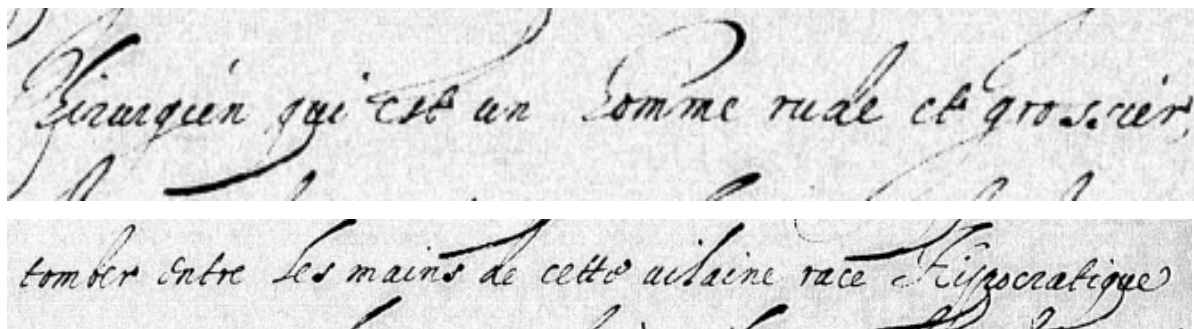 Hirurgien qui est un homme rude et grossier,
tomber entre les mains de cette uilaine race Hippocratique